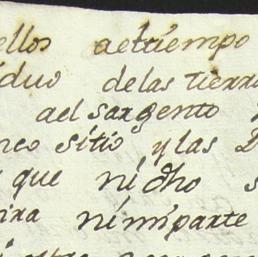 ellos aeltiempo
iduo delas tierra
ael sargento
nco sitio y las D
que ni dho s
ira nimiparte